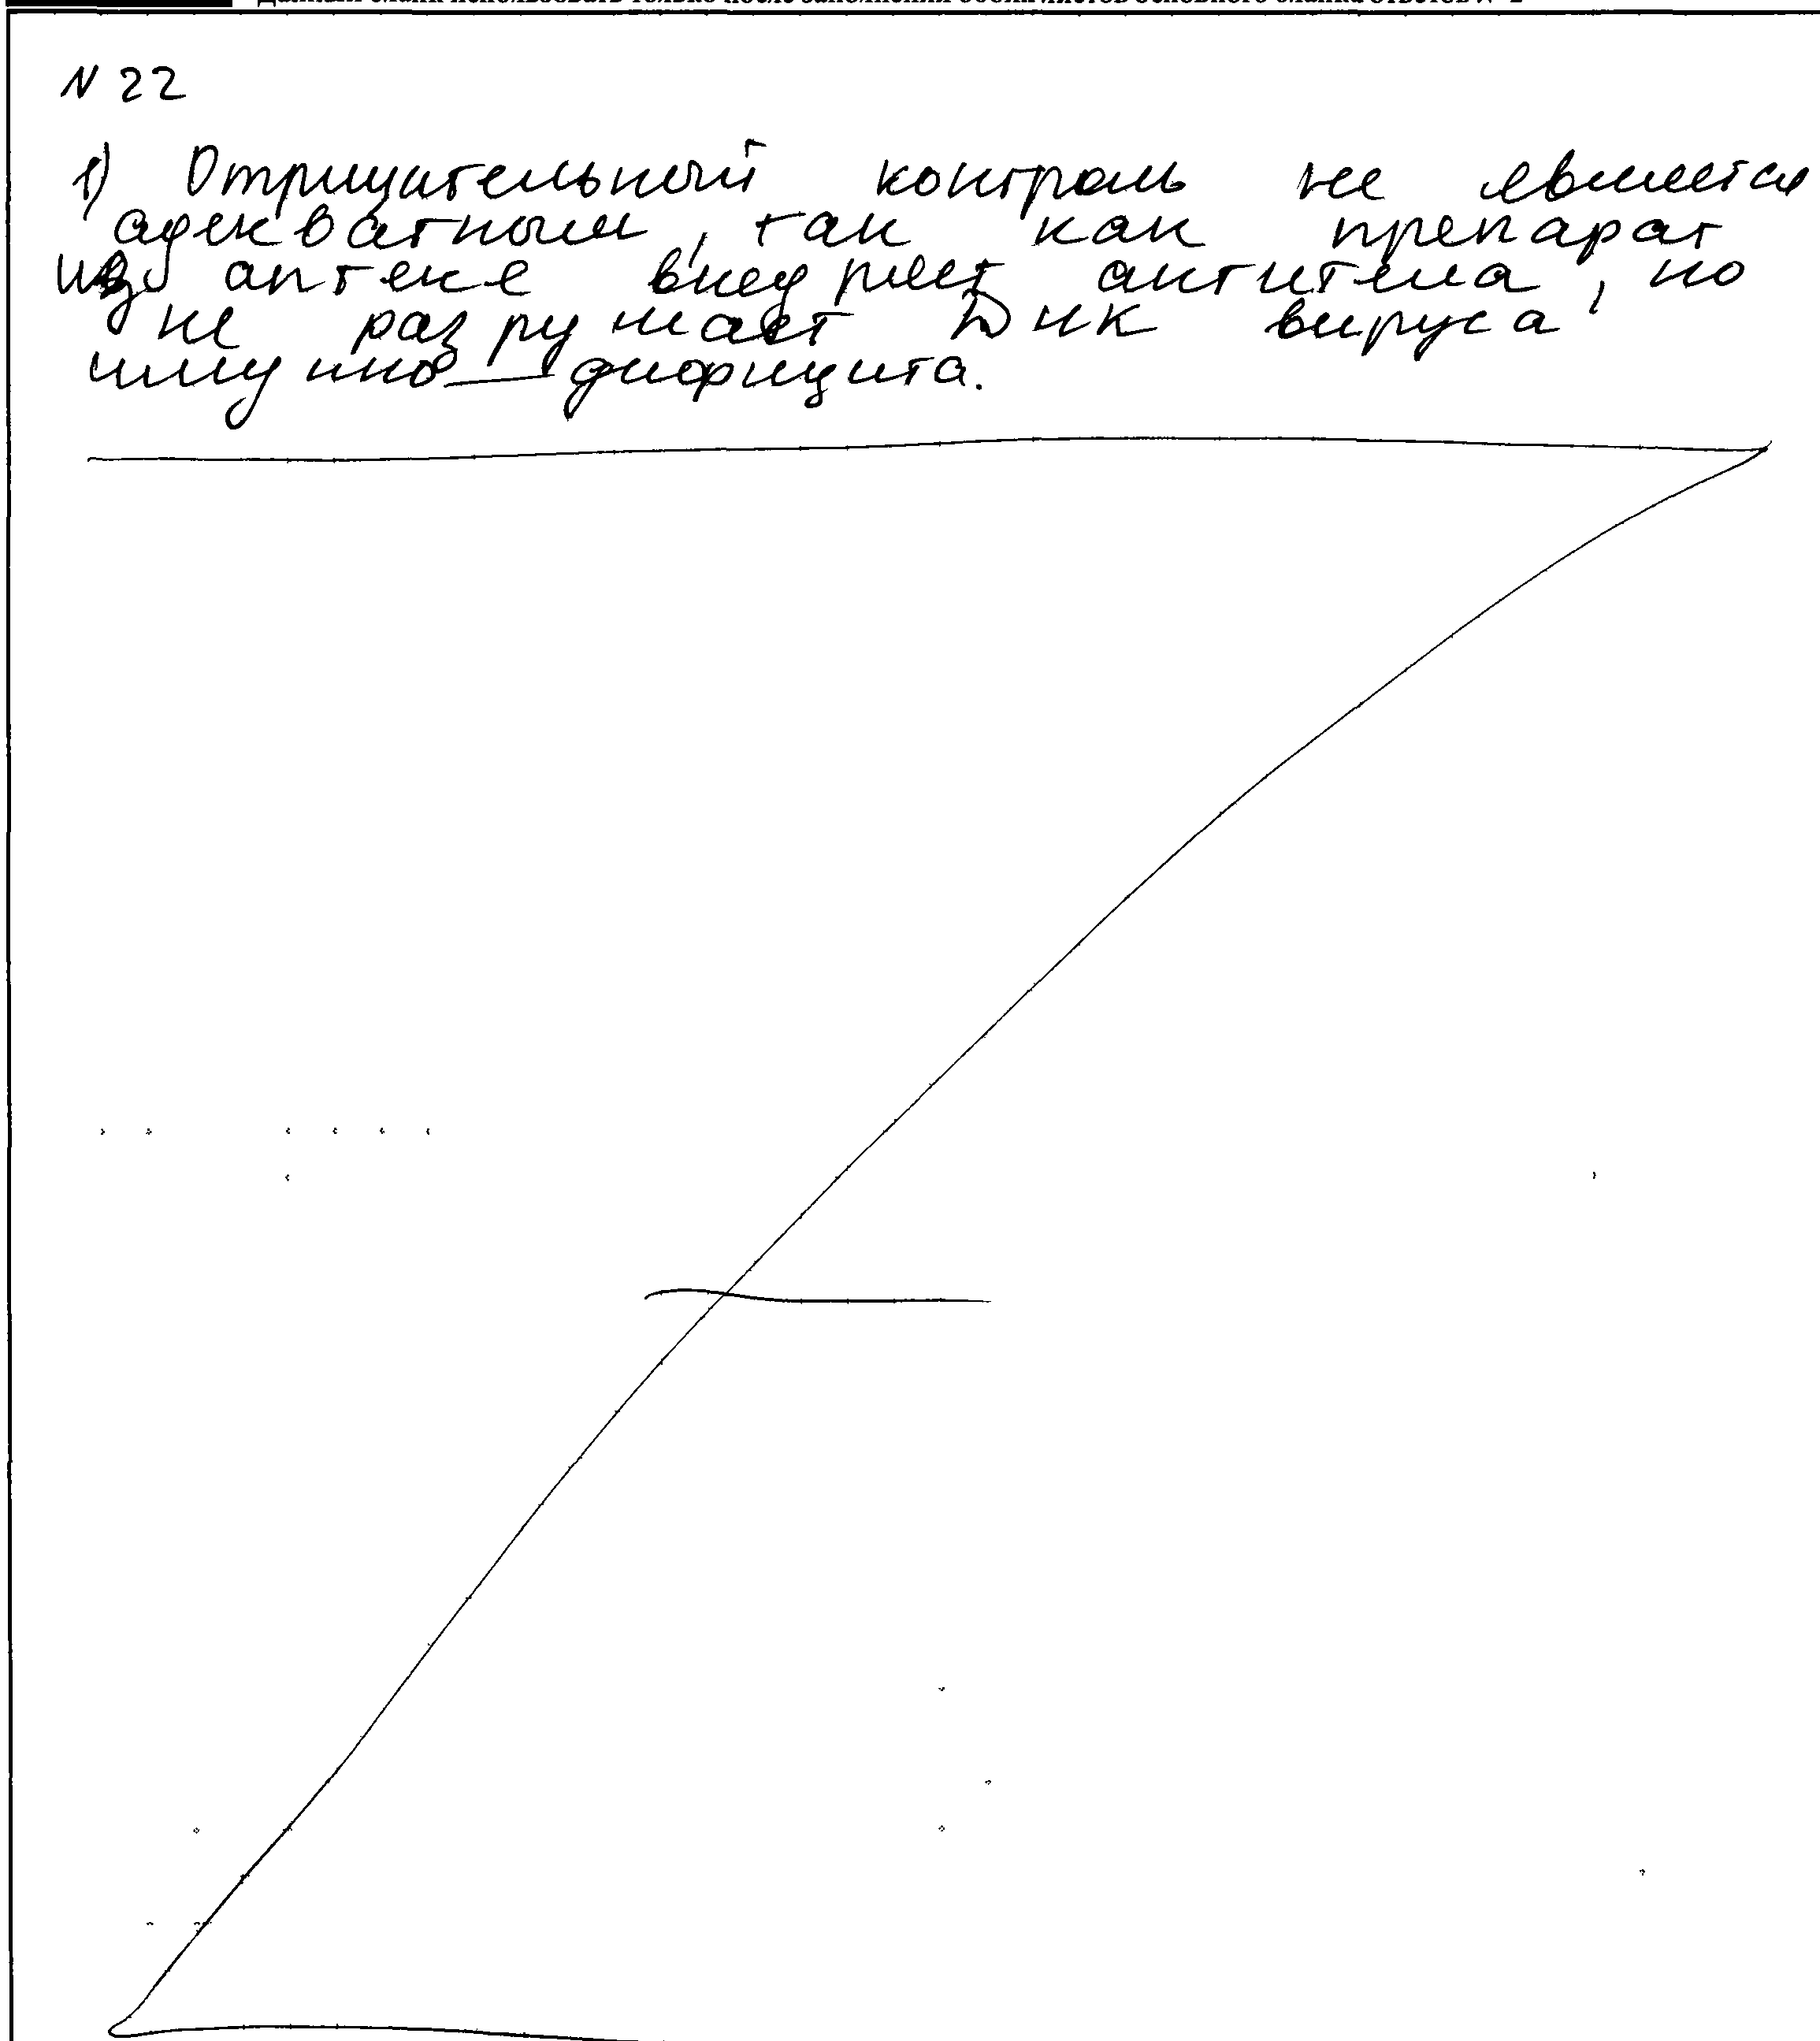 Данный бланк использовать только после заполнения обоих листов основного бланка ответов № 2
N 22
1) Отрицательный контроль не является
адекватным, так как препарат
из аптеке внедряет антитела, но
не разрушает ДНК вируса
иммунно-дифицита.